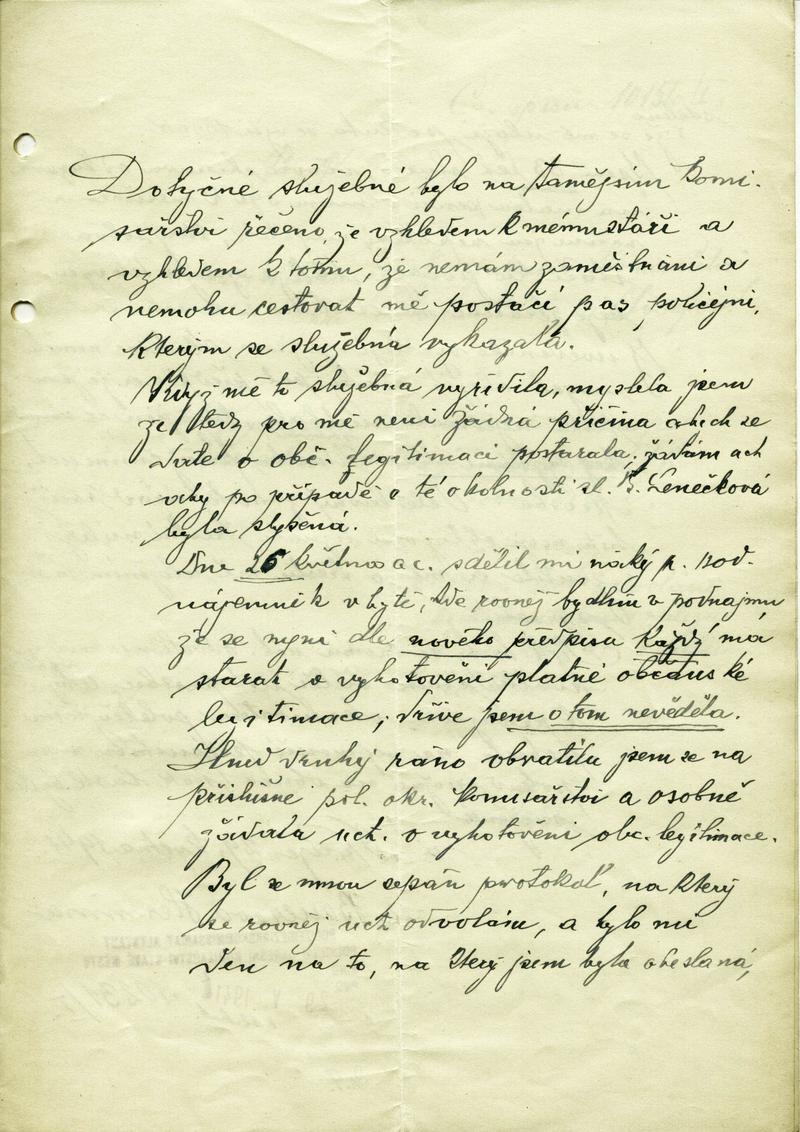 Dotyčné služebné bylo na tamějsím komi-
sařství řečeno, že vzhledem k mému stáří a
vzhledem k tomu, že nemám zaměstnání a
nemohu cestovat mě postačí pas policejní,
kterým se služebná vykazala.
Když mě to služebná vyřídila, myslela jsem
že tedy pro mě není žádná příčina abych se
dále o obč. legitimaci postarala, žádám uct
aby po případě o té okolnosti sl. B. Lenečková
byla slyšená.
Dne 26 května a c. sdělil mi náký p. pod-
nájemník v bytě, kde rovněj bydlím v podnajmu
že se nyní dle nového předpisu každý má
starat o vyhotovění platné občanské
legitimace, dříve jsem o tom nevěděla.
Hned druhý ráno obratila jsem se na
příslušné pol. okr. komisařství a osobně
žádala uct. o vyhotovění obč. legitimace.
Byl se mnou sepán protokol, na který
se rovněj uct odvolám, a bylo mi
den na to, na který jsem byla obeslaná,